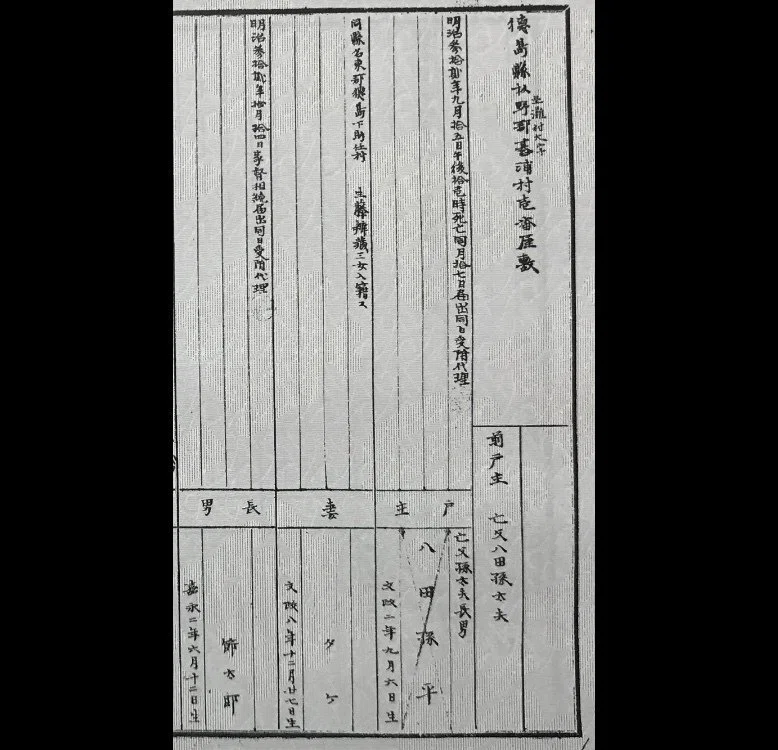 徳島縣板野郡
村大字
浦村壱番屋敷
前戸主 亡父八田孫太夫
明治参拾貳年九月拾五日午後拾壱時死亡同月拾七日届出同日受附代理
戸主
亡父孫太夫長男
八田孫平
文政二年九月六日生
同縣名東郡徳島下助任村
三女入籍ス
妻
タケ
文政八年十二月廿七日生
明治参拾貳年拾月拾四日家督相続届出同日受附代理
長男
節太郎
嘉永二年六月十二日生